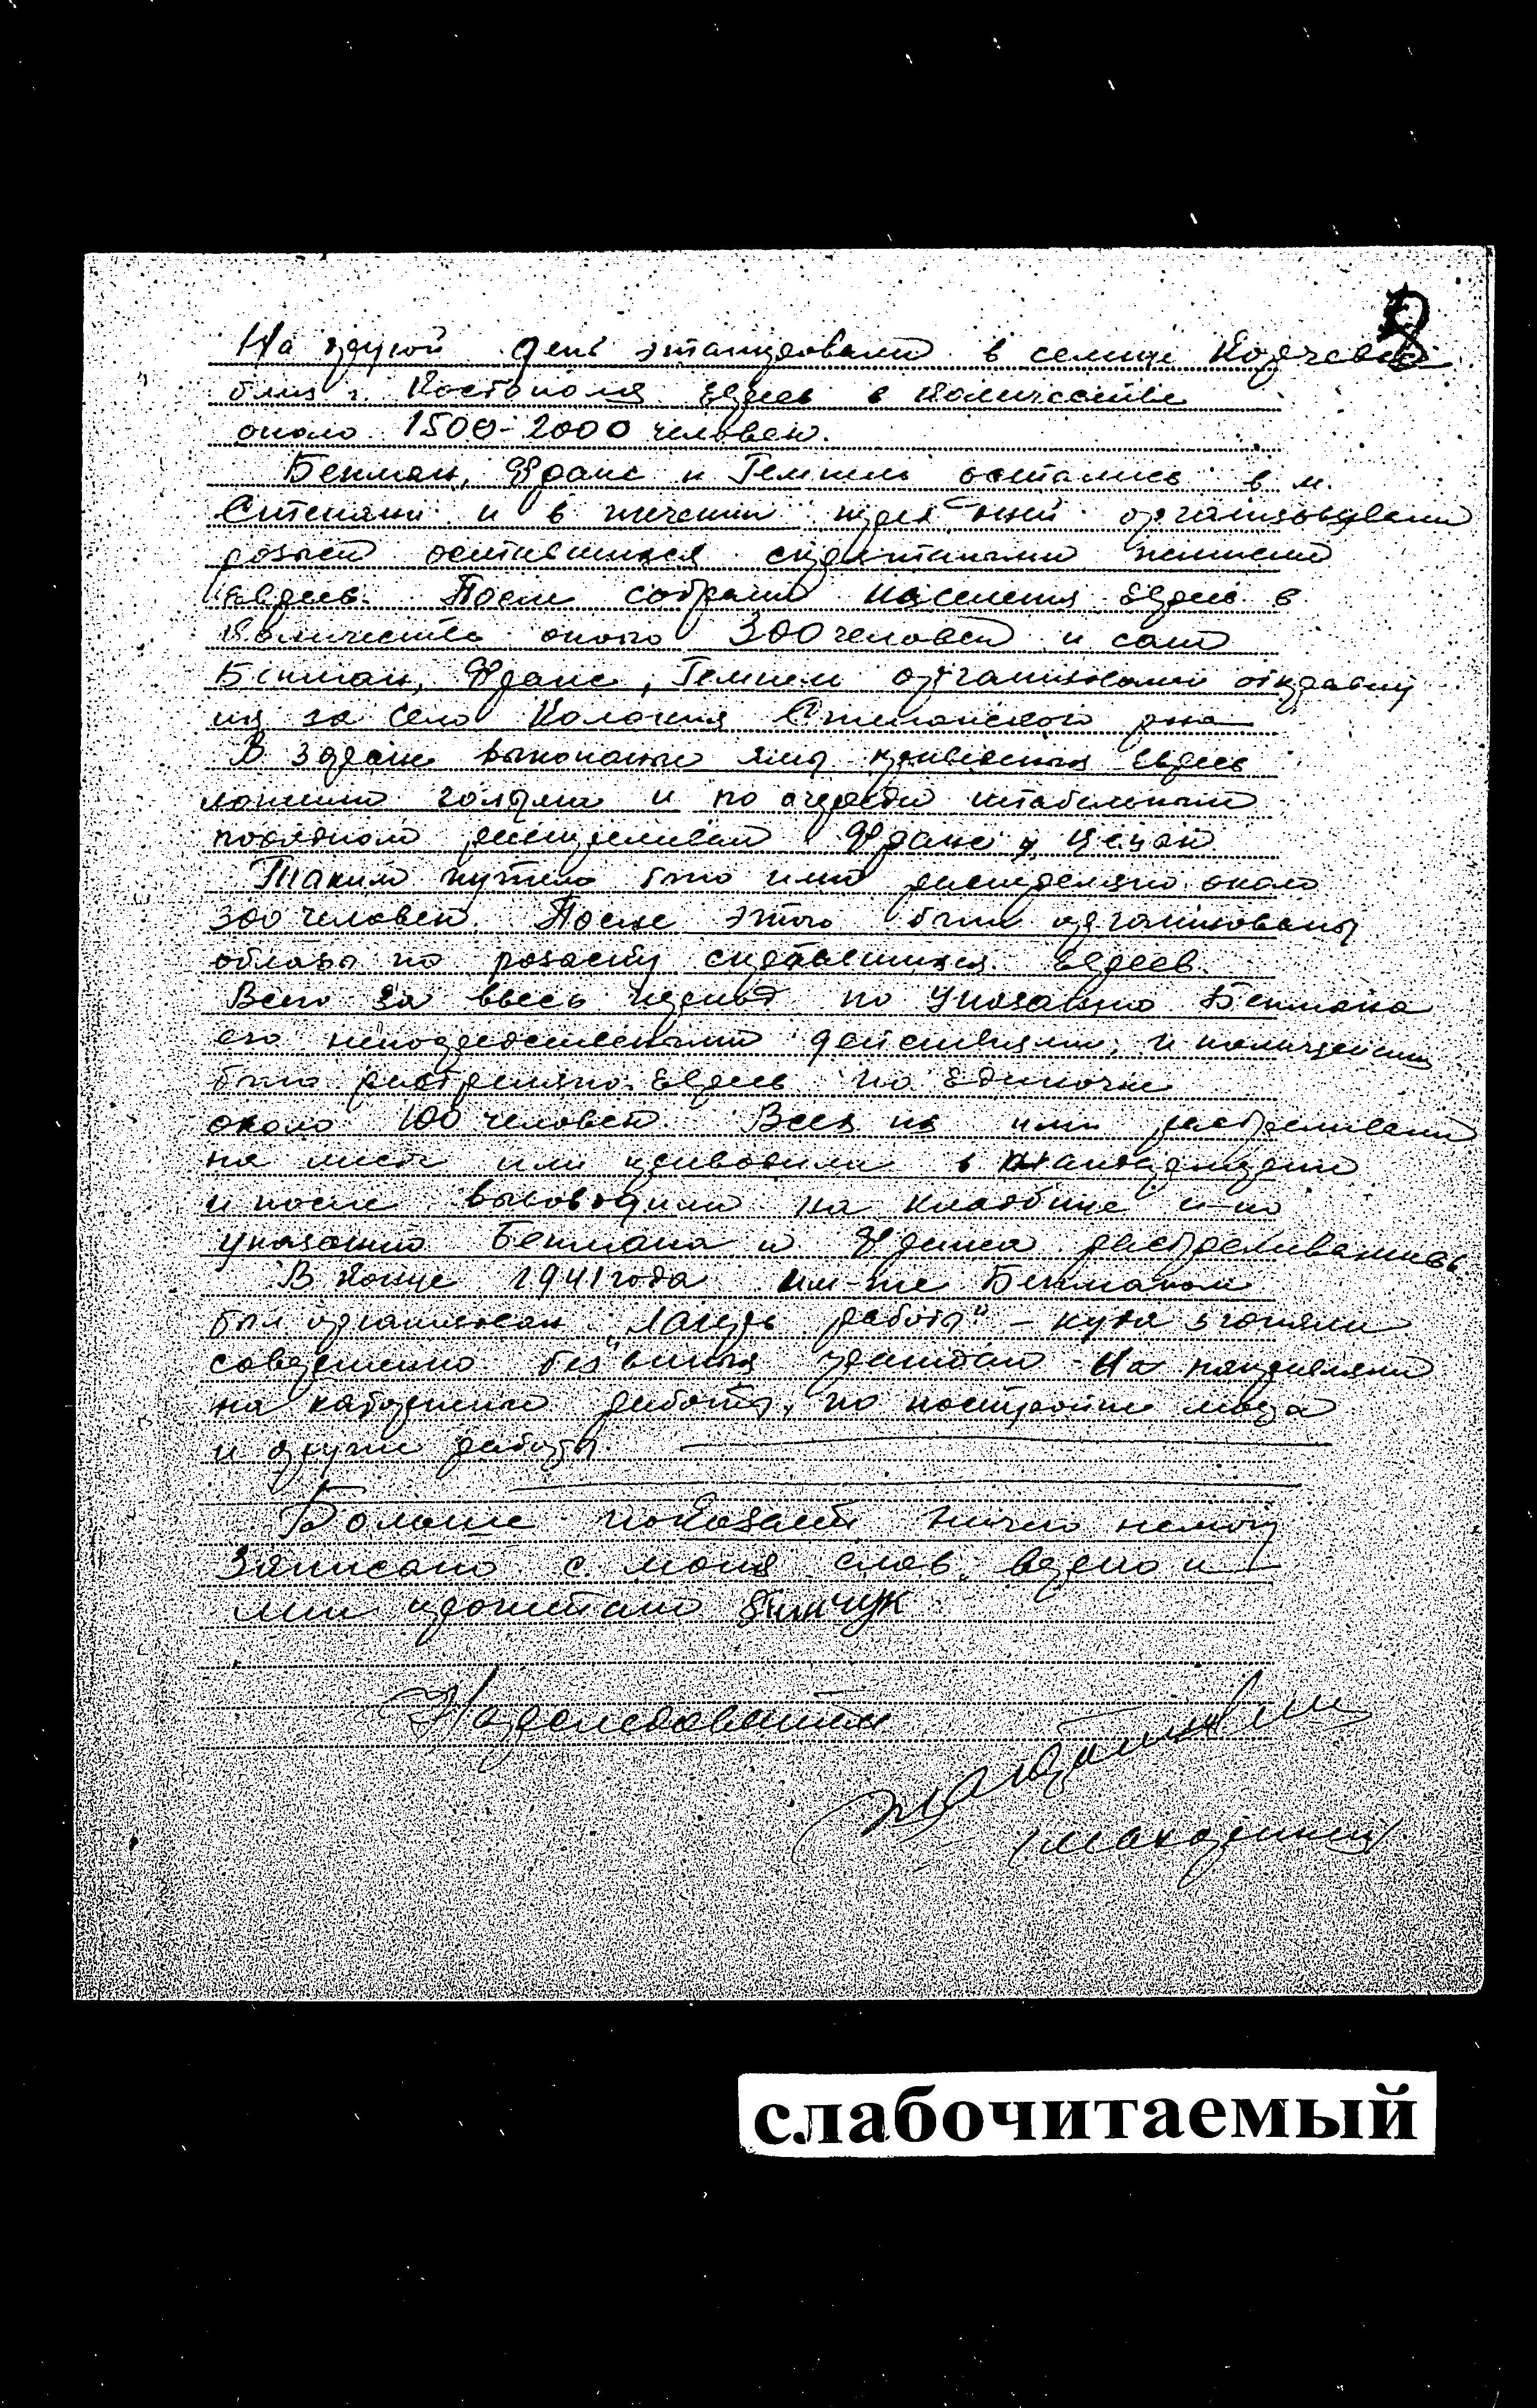 8
На другой день этапировали в селище Корчевье
близ г. Костополя евреев в количестве
около 1500-2000 человек.
Бекман, Франс и Гемпель остались в м.
Степани и в течении трех дней организовывали
розыск оставшихся спрятаными
евреев. После собрали населения евреев в
количестве около 300 человек и сам
Бекман, Франс, Гемпель организовали отправку
их за село Колония Степанского р-на
В заранее выкопаные ямы привезеных евреев
ложили голыми и по очереди штабельным
порядком расстреливали Франс и
Таким путем было ими расстреляно около
300 человек. После этого были организованы
облавы по розыску спрятавшихся евреев.
Всего за ввесь период по указанию Бекмана
его непосредственными действиями, и полицейских
было расстреляно евреев по одиночке
около 100 человек. Всех их ими расстреливали
на месте или приводили в жандармерию
и после выводили на кладбище и по
указанию Бекмана и Франса расстреливались.
В конце 1941 года им-же Бекманом
был организован „Лагерь работы" – куда згоняли
совершенно безвиных граждан. Их направляли
на каторжные работы, по постройке моста
и другие работы.
Больше показать ничего немогу
Записано с моих слов верно и
мне прочитано
Нарследователь